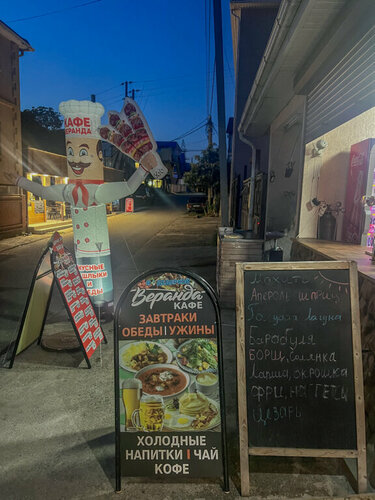 КАФЕ
ВЕРАНДА
Веранда
КАФЕ
ЗАВТРАКИ
ОБЕДЫ | УЖИНЫ
ХОЛОДНЫЕ
НАПИТКИ | ЧАЙ
КОФЕ
Апероль шприц
Голубая лагуна
Барабуля
Борщ, Солянка
Лапша, окрошка
Фри, наггетц
Цезарь